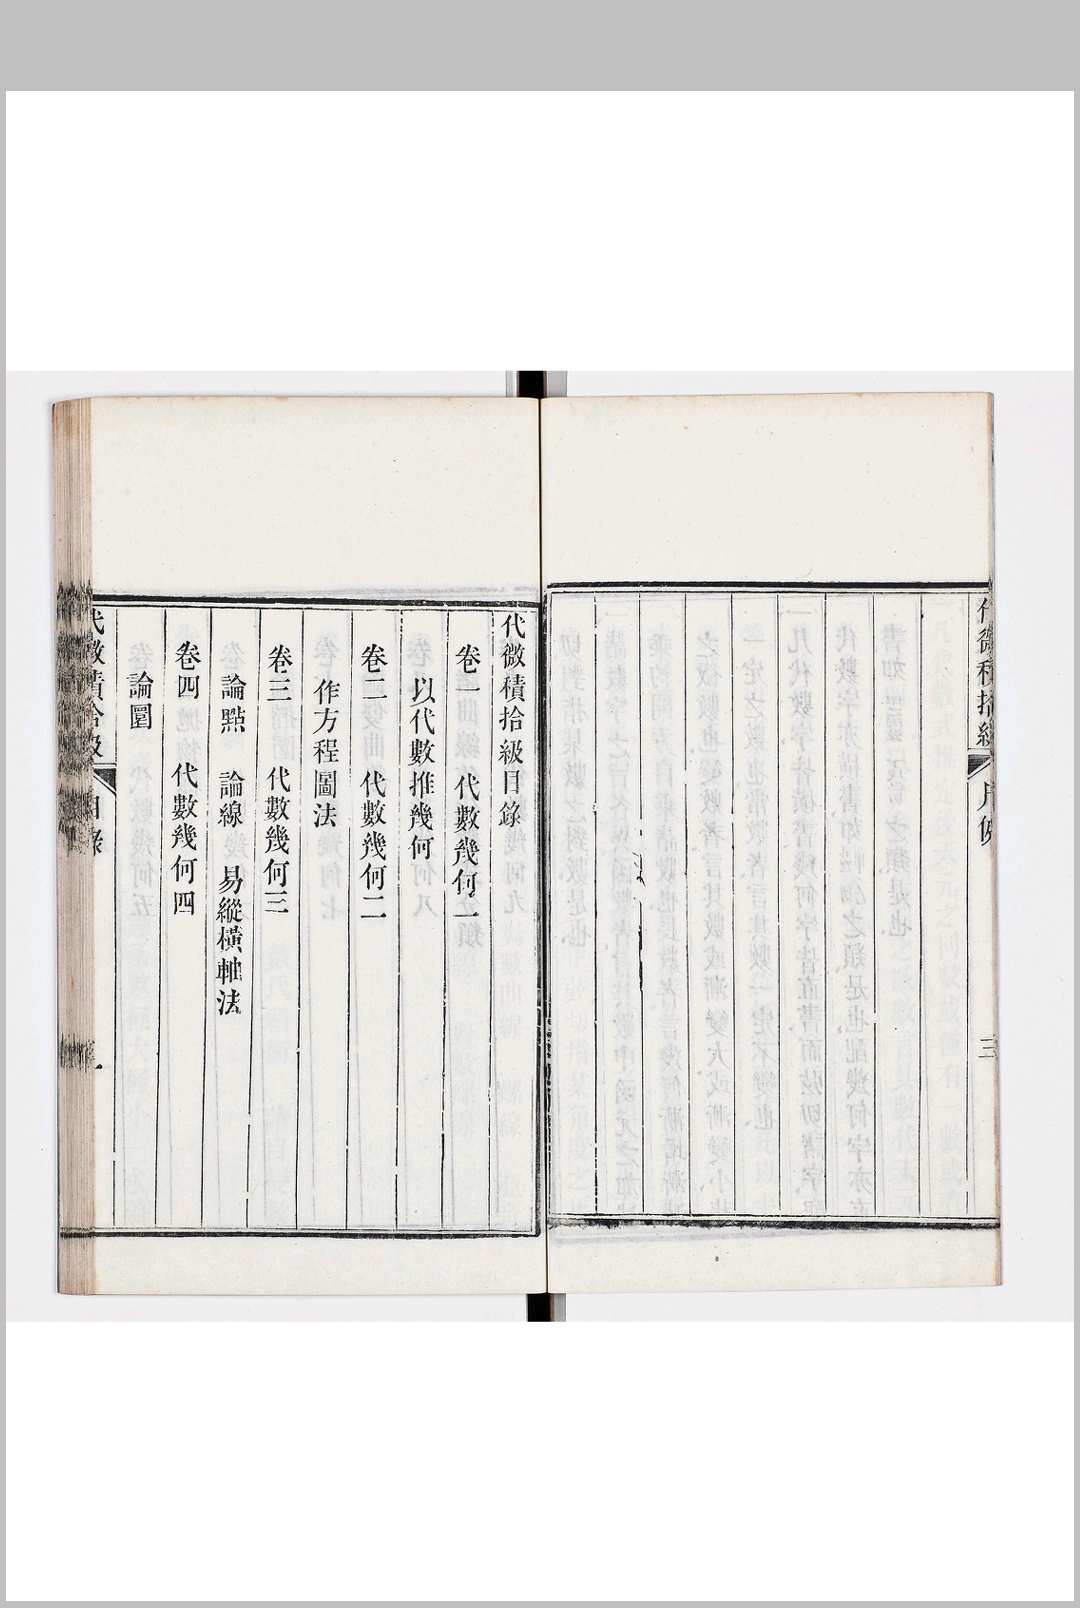 代微積拾級
凡例
三
代微積拾級目錄
卷一 代數幾何一
以代數推幾何
卷二 代數幾何二
作方程圖法
卷三 代數幾何三
論點 論線 易縱橫軸法
卷四 代數幾何四
論圜
代微積拾級
目錄
一